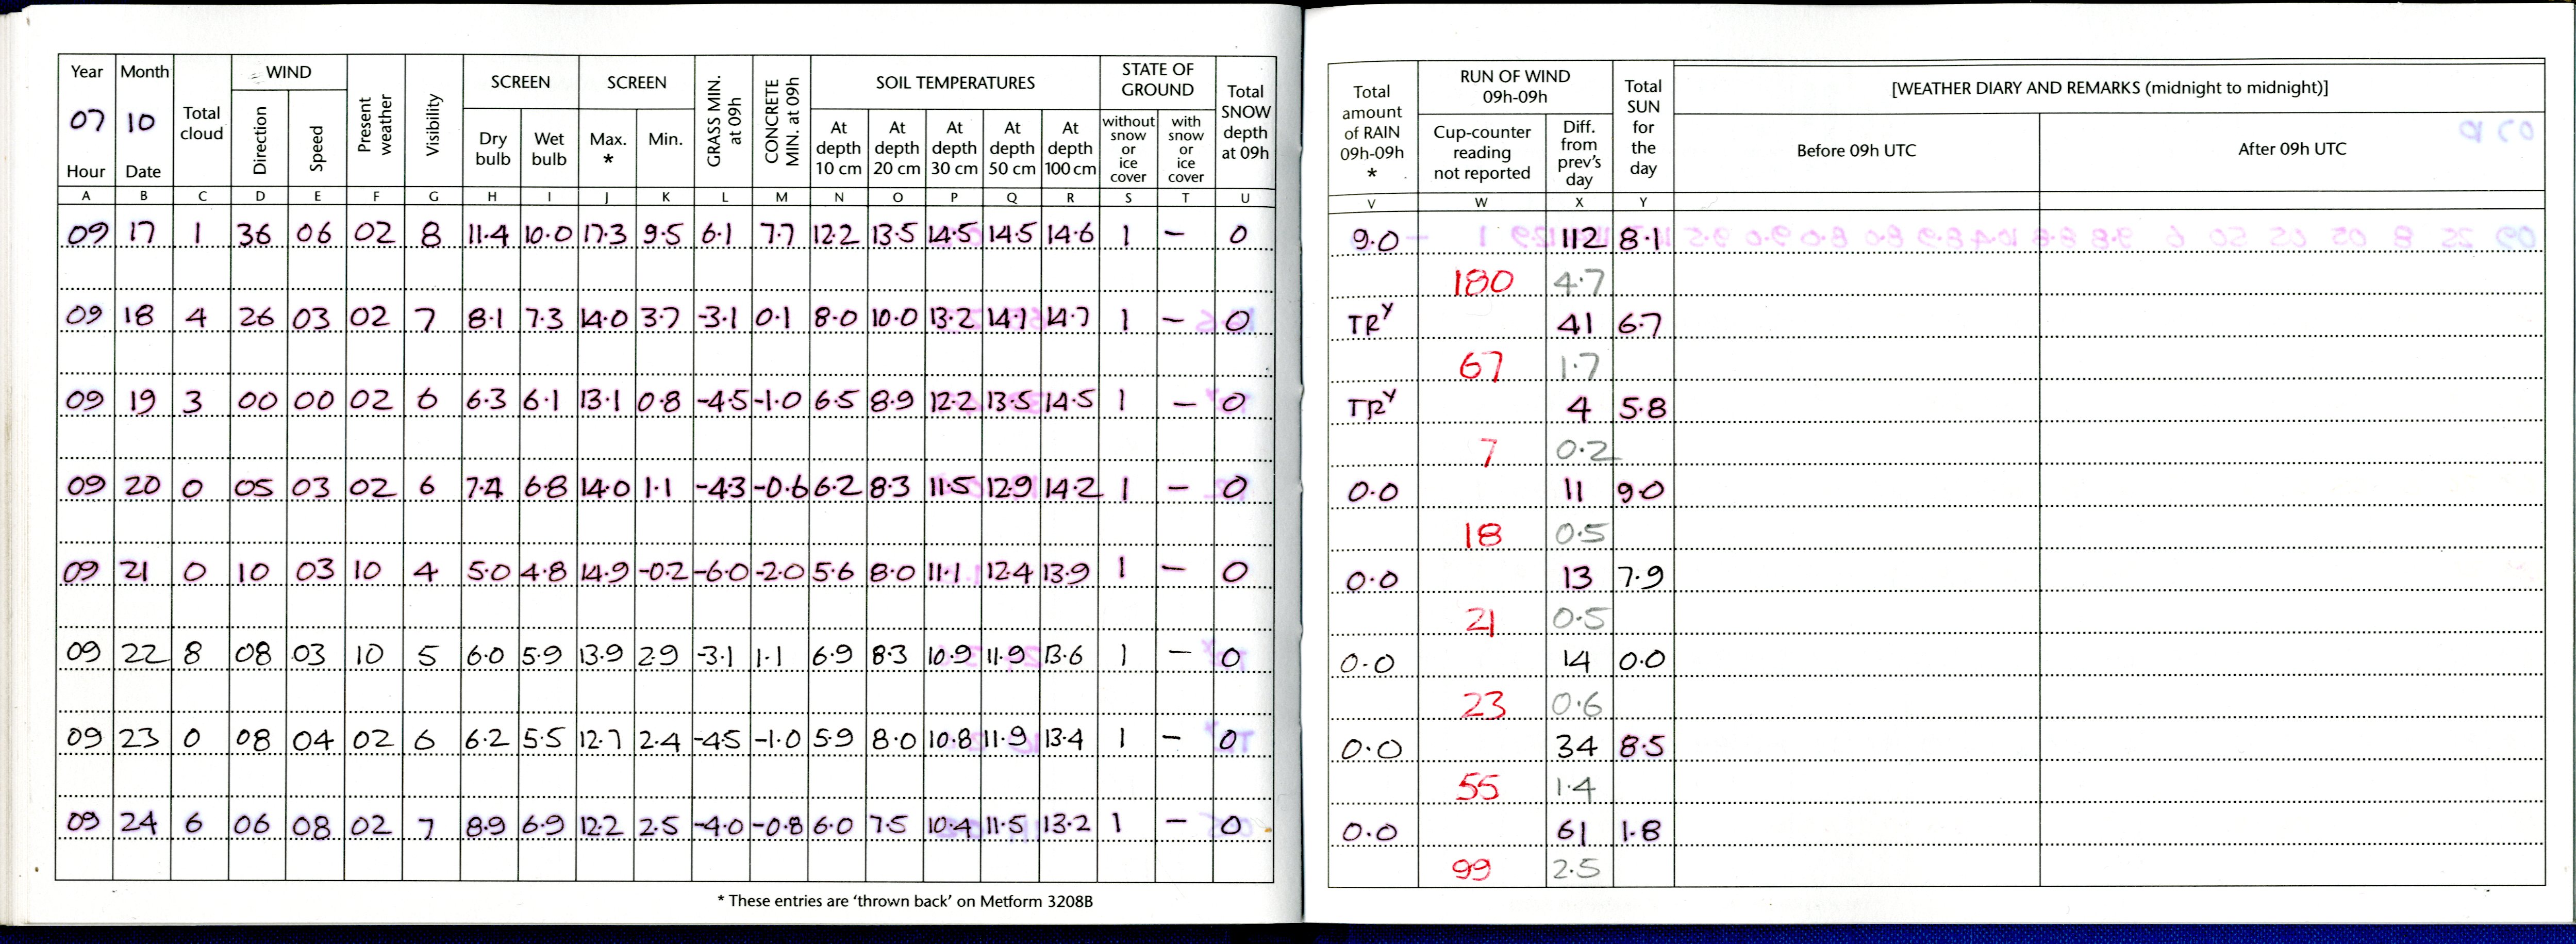 Year Month Total cloud WIND Present weather Visibility SCREEN SCREEN GRASS MIN. at 09h CONCRETE MIN. at 09h SOIL TEMPERATURES STATE OF GROUND Total SNOW depth at 09h
07 10 Direction Speed Dry bulb Wet bulb Max. * Min. At depth 10 cm At depth 20 cm At depth 30 cm At depth 50 cm At depth 100 cm without snow or ice cover with snow or ice cover
Hour Date
A B C D E F G H I J K L M N O P Q R S T U
09 17 1 36 06 02 8 11.4 10.0 17.3 9.5 6.1 7.7 12.2 13.5 14.5 14.5 14.6 1 – 0
09 18 4 26 03 02 7 8.1 7.3 14.0 3.7 -3.1 0.1 8.0 10.0 13.2 14.1 14.7 1 – 0
09 19 3 00 00 02 6 6.3 6.1 13.1 0.8 -4.5 -1.0 6.5 8.9 12.2 13.5 14.5 1 – 0
09 20 0 05 03 02 6 7.4 6.8 14.0 1.1 -4.3 -0.6 6.2 8.3 11.5 12.9 14.2 1 – 0
09 21 0 10 03 10 4 5.0 4.8 14.9 -0.2 -6.0 -2.0 5.6 8.0 11.1 12.4 13.9 1 – 0
09 22 8 08 03 10 5 6.0 5.9 13.9 2.9 -3.1 1.1 6.9 8.3 10.9 11.9 13.6 1 – 0
09 23 0 08 04 02 6 6.2 5.5 12.7 2.4 -4.5 -1.0 5.9 8.0 10.8 11.9 13.4 1 – 0
09 24 6 06 08 02 7 8.9 6.9 12.2 2.5 -4.0 -0.8 6.0 7.5 10.4 11.5 13.2 1 – 0
* These entries are 'thrown back' on Metform 3208B
Total amount of RAIN 09h-09h * RUN OF WIND 09h-09h Total SUN for the day [WEATHER DIARY AND REMARKS (midnight to midnight)]
Cup-counter reading not reported Diff. from prev's day Before 09h UTC After 09h UTC
V W X Y
9.0 112 8.1
180 4.7
TRY 41 6.7
67 1.7
TRY 4 5.8
7 0.2
0.0 11 9.0
18 0.5
0.0 13 7.9
21 0.5
0.0 14 0.0
23 0.6
0.0 34 8.5
55 1.4
0.0 61 1.8
99 2.5